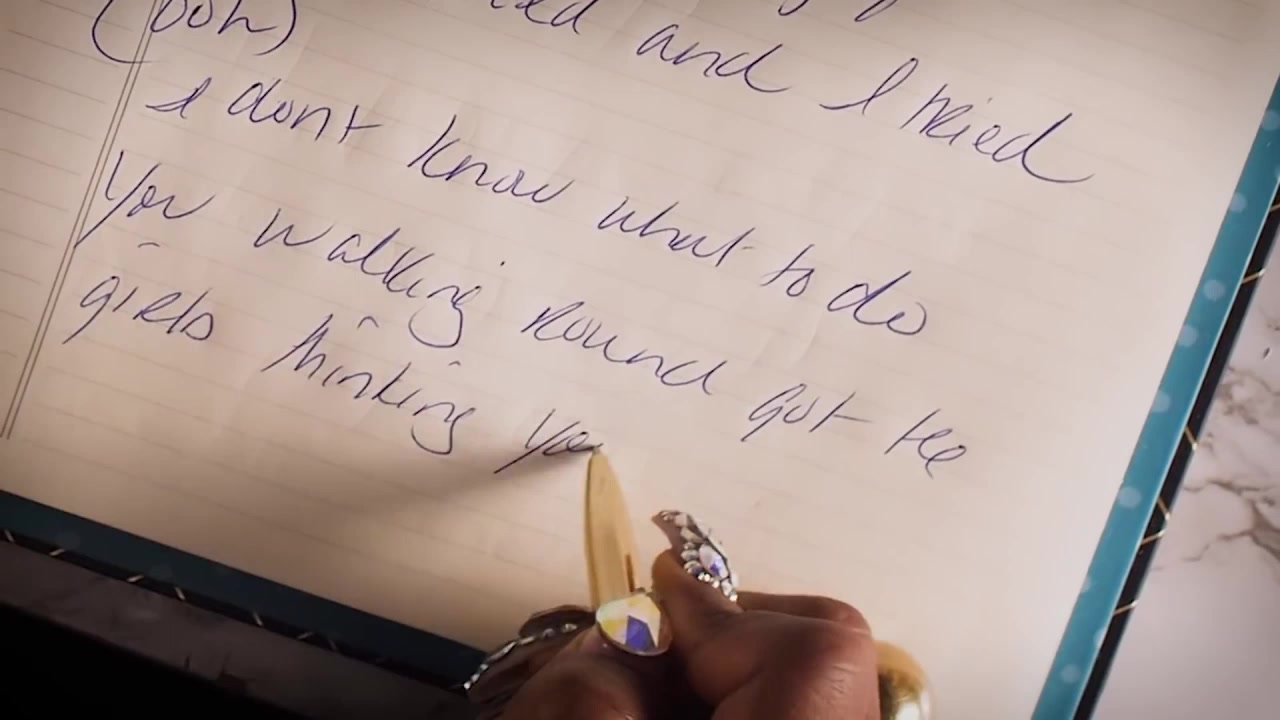 and I tried
(ooh)
I dont know what to do
You walking round got the
girls thinking yo